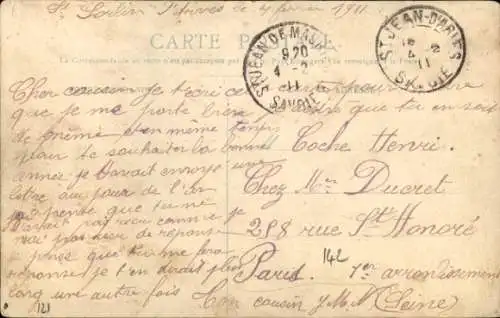 St Sorlin d'Arves le 4 février 1911
CARTE POSTALE
ST JEAN DE MAUR
9 20
4 - 2
11
SAVOIE
ST JEAN-D'ARVES
4 2
11
SAVOIE
Cher cousin je t'écris
que je me porte bien
je désire que tu en soit
de même et en même temps
pour te souhaiter la bonne
année je t'avait envoyé une
lettre au jour de l'an
je pense que tu ne
l'avait pas reçu comme je
n'ai pas de réponse
je pense que tu me fera
réponse je t'en dirait plus
long une autre fois
Ton cousin J. M. N
Coche Henri.
Chez Mr Ducret
218 rue St Honoré
Paris. 1er arrondissement
(Seine)
142
121